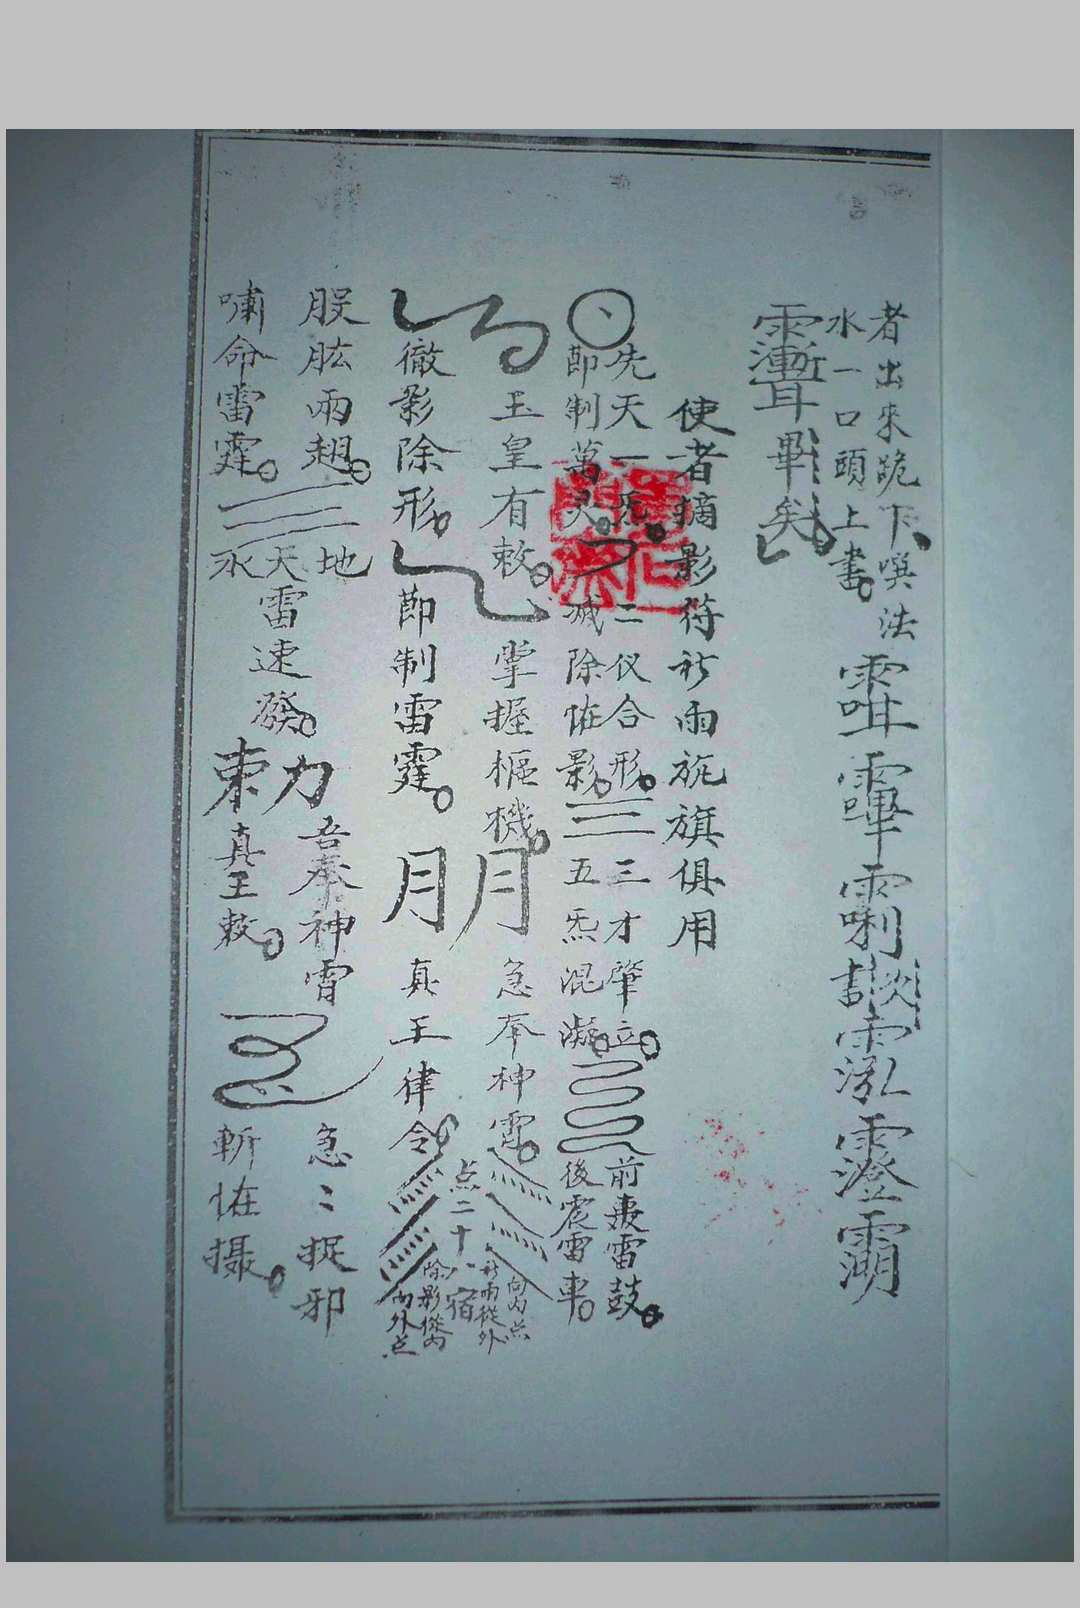 者出來跪下噀法
水一口頭上書
使者摛影符祈雨旎旗俱用
先天一炁
即制萬灵
二仪合形
滅除怪影
三才肇立
五炁混凝
前轰雷鼓
後震雷車
玉皇有敕
掌握樞機
月
急奉神霄
徹影除形
即制雷霆
月
真王律令
点二十八宿
向内点
祈雨從外
除影從内
向外点
股肱兩翅
嘯命雷霆
地
天
水
雷速發
敕
吾奉神霄
真王敕
急〻捉邪
斬怪摄